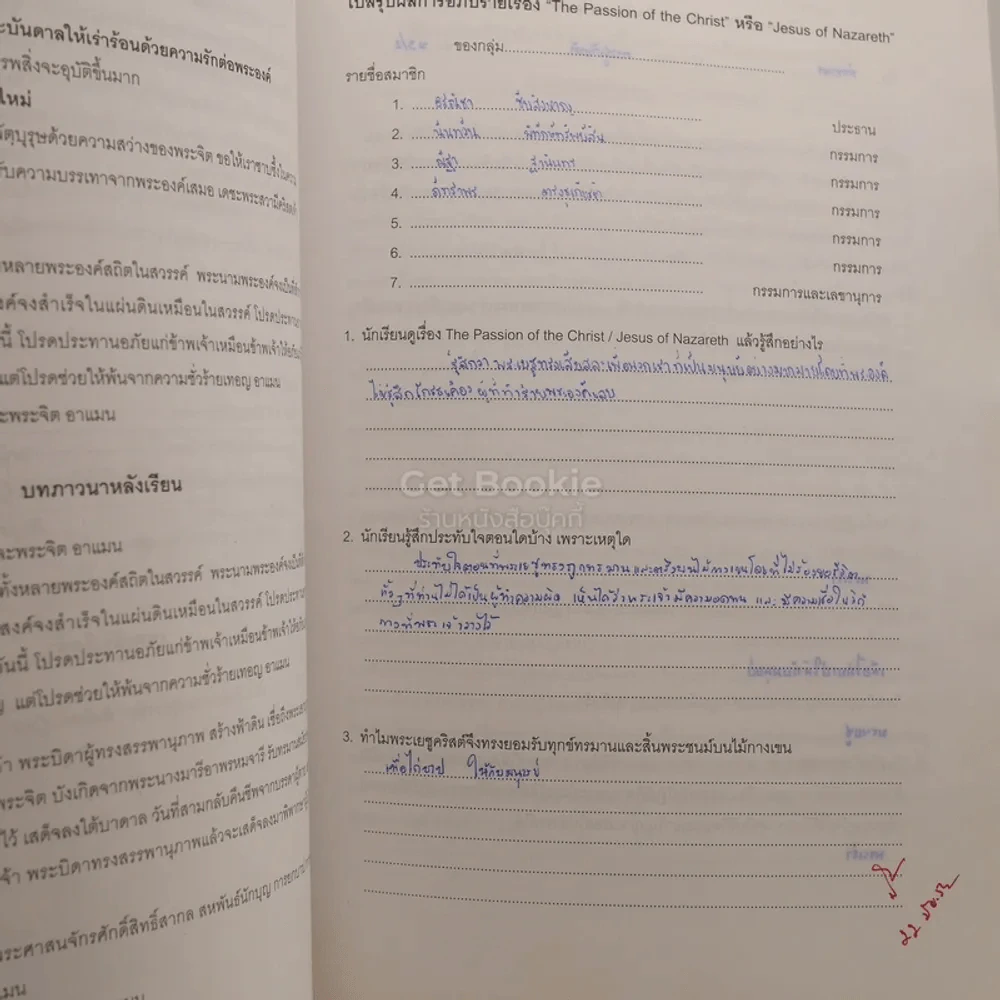 ะบันดาลให้เร่าร้อนด้วยความรักต่อพระองค์
รพสิ่งจะอุบัติขึ้นมาก
ใหม่
ัตบุรุษด้วยความสว่างของพระจิต ขอให้เราซาบซึ้งในความ
ับความบรรเทาจากพระองค์เสมอ เดชะพระสวามีคริสตเจ้า
งหลายพระองค์สถิตในสวรรค์ พระนามพระองค์จงเป็นที่สัก
งค์จงสำเร็จในแผ่นดินเหมือนในสวรรค์ โปรดประทาน
นี้ โปรดประทานอภัยแก่ข้าพเจ้าเหมือนข้าพเจ้าให้อภัย
แต่โปรดช่วยให้พ้นจากความชั่วร้ายเทอญ อาแมน
ะพระจิต อาแมน
บทภาวนาหลังเรียน
ละพระจิต อาแมน
ทั้งหลายพระองค์สถิตในสวรรค์ พระนามพระองค์จงเป็นที่
สงค์จงสำเร็จในแผ่นดินเหมือนในสวรรค์ โปรดประทาน
วันนี้ โปรดประทานอภัยแก่ข้าพเจ้าเหมือนข้าพเจ้าให้อภัย
ญ แต่โปรดช่วยให้พ้นจากความชั่วร้ายเทอญ อาแมน
จ้า พระบิดาผู้ทรงสรรพานุภาพ สร้างฟ้าดิน เชื่อถึงพระเยซู
พระจิต บังเกิดจากพระนางมารีอาพรหมจารี รับทรมานสมัย
ไว้ เสด็จลงใต้บาดาล วันที่สามกลับคืนชีพจากบรรดาผู้ตาย
จ้า พระบิดาทรงสรรพานุภาพแล้วจะเสด็จลงมาพิพากษา
พระศาสนจักรศักดิ์สิทธิ์สากล สหพันธ์นักบุญ การยกบาป
แมน
ใบสรุปผลการอภิปรายเรื่อง "The Passion of the Christ" หรือ "Jesus of Nazareth"
ของกลุ่ม
รายชื่อสมาชิก
1. ประธาน
2. กรรมการ
3. กรรมการ
4. กรรมการ
5. กรรมการ
6. กรรมการ
7. กรรมการและเลขานุการ
1. นักเรียนดูเรื่อง The Passion of the Christ / Jesus of Nazareth แล้วรู้สึกอย่างไร
รู้สึกว่า พระเยซูทรงเสียสละเพื่อพวกเราที่เป็นมนุษย์อย่างมากมายโดนที่พระองค์
ให้รู้สึกโกรธเคือง ผู้ที่ทำร้ายพระองค์เลย
Get Bookie
ร้านหนังสือบุ๊คกี้
2. นักเรียนรู้สึกประทับใจตอนใดบ้าง เพราะเหตุใด
ประทับใจตอนที่พระเยซูทรงถูกทรมาน และตรึงบนไม้กางเขนโดยที่ไม่ร้องขอชีวิต
ทั้งๆที่ท่านไม่ได้เป็นผู้ทำความผิด เห็นได้ว่าพระเจ้ามีความอดทน และ มีความเชื่อในวิถี
ทางที่พระเจ้าวางไว้
3. ทำไมพระเยซูคริสต์จึงทรงยอมรับทุกข์ทรมานและสิ้นพระชนม์บนไม้กางเขน
เพื่อไถ่บาป ให้กับมนุษย์